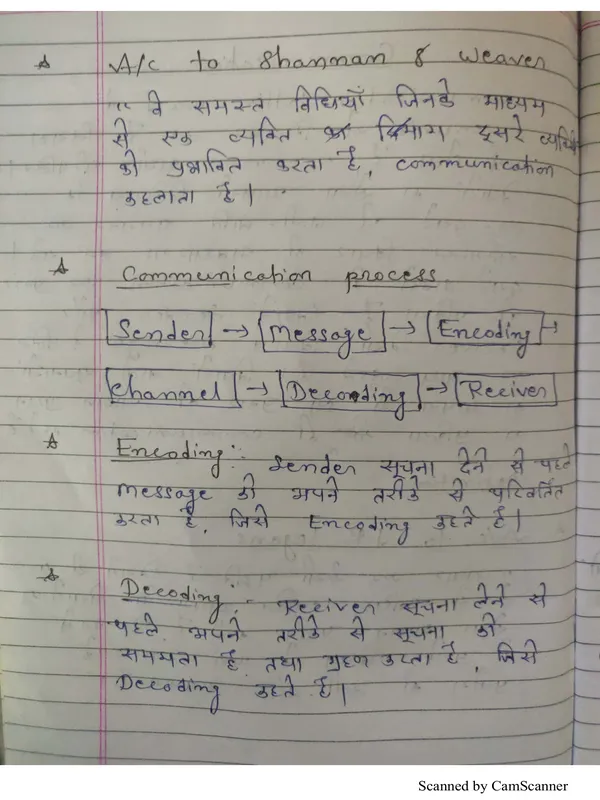 A/c to Shannan & Weaver
“ वे समस्त विधियाँ जिनके माध्यम
से एक व्यक्ति का दिमाग दूसरे व्यक्ति
को प्रभावित करता है, communication
कहलाता है।
Communication process
Sender → Message → Encoding →
Channel → Decording → Reciver
Encoding :- Sender सूचना देने से पहले
message को अपने तरीके से परिवर्तित
करता है, जिसे Encoding कहते है।
Decoding :- Reciver सूचना लेने से
पहले अपने तरीके से सूचना को
समझता है तथा ग्रहण करता है, जिसे
Decoding कहते है।
Scanned by CamScanner